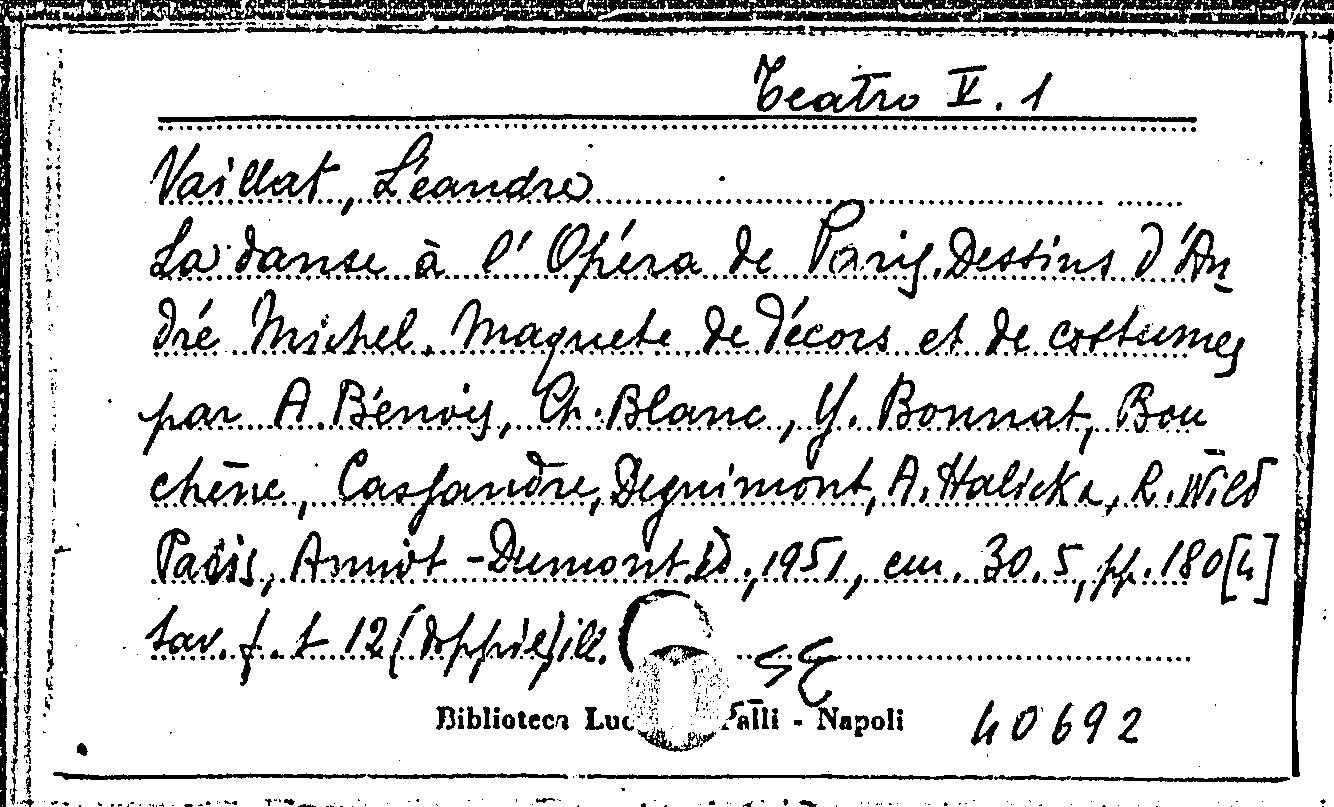 Teatro V. 1
Vaillat, Léandre
La danse à l'Opéra de Paris. Dessins d'An-
dré Michel. Maquete de décors et de costumes
par A. Bénois, Ch. Blanc, Y. Bonnat, Bou
chène, Cassandre, Deguimont, A. Halicka, R. Wild
Paris, Amiot-Dumont éd., 1951, cm. 30.5, pp. 180 [4]
tav. f. t 12 (doppie) ill.
Biblioteca Palli - Napoli
40692